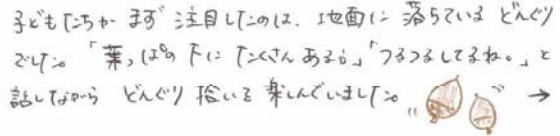 子どもたちがまず注目したのは、地面に落ちているどんぐり
でした。「葉っぱの下にたくさんあるよ」「つるつるしてるね。」と
話しながら どんぐり拾いを楽しんでいました。 →